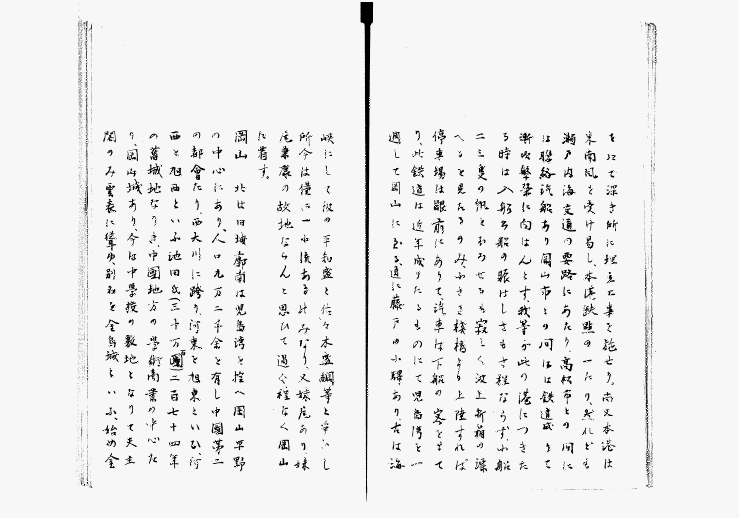 を以て深き所に埋立工事を施せり、尚又本港は
東南風を受け易し、本港缺點の一たり、然れども
瀬戸内海交通の要路にあたり、高松市との間に
は聯絡汽船あり岡山市との間には鉄道成りて
漸次繁栄に向はんとす、我等が此の港につきた
る時は入船出船の賑はしさもさ程ならず、小船
二三隻の組とおろせるも寂しく波上新藻の漂
へると見たるのみ、小さき桟橋より上陸すれば
停車場は眼前にありて汽車は下船の客をまて
り、此鉄道は近年成りたるものにて児島湾を一
過して岡山に至る、途に藤戸の小驛あり、古は海
峡にして彼の平知盛と佐々木盛綱等と争ひし
所今は僅に一小渓あるのみなり、又妹尾あり妹
尾兼康の故地ならんと思ひて過ぐ程なく岡山
に着す。
岡山 北は旧城廓南は児島湾を控へ岡山平野
の中心にあり、人口九万二千余を有し中國第二
の都會たり、西大川に跨り、河東を旭東といひ、河
西を旭西といふ池田氏(三十万國)二百七十四年
の舊城地なりき、中國地方の學術商業の中心た
り、岡山城あり、今は中學校の敷地となりて天主
閣のみ雲表に聳ゆ、別名を金烏城といふ、始め金